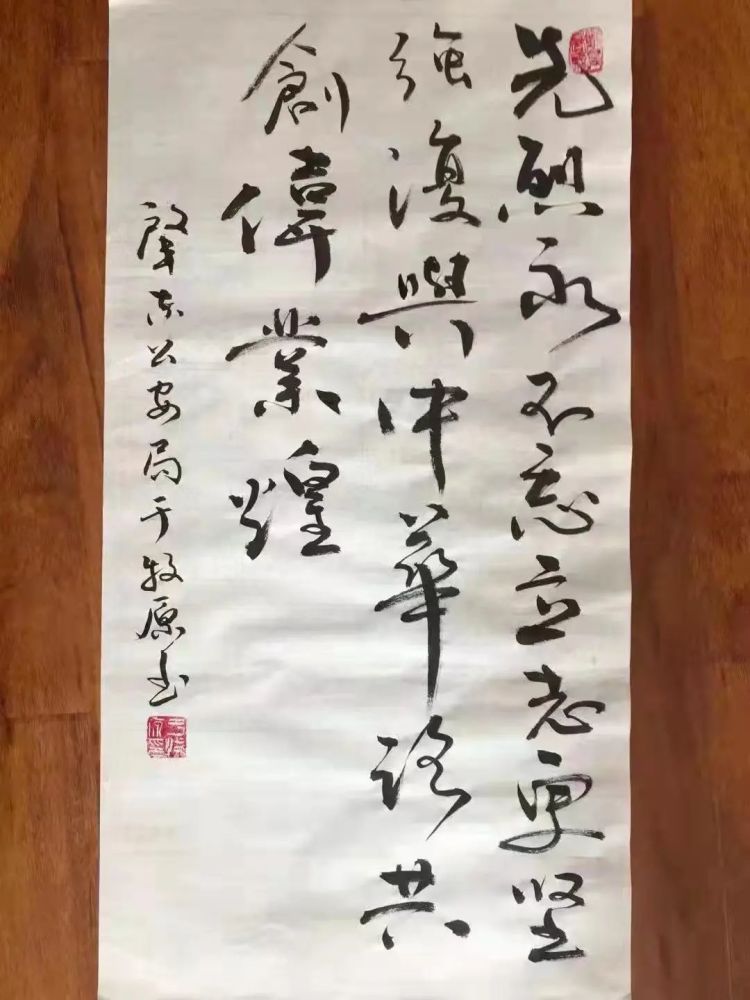 先烈永不忘立志更坚
强復興中華路共
創偉業煌
肇东公安局于牧原书